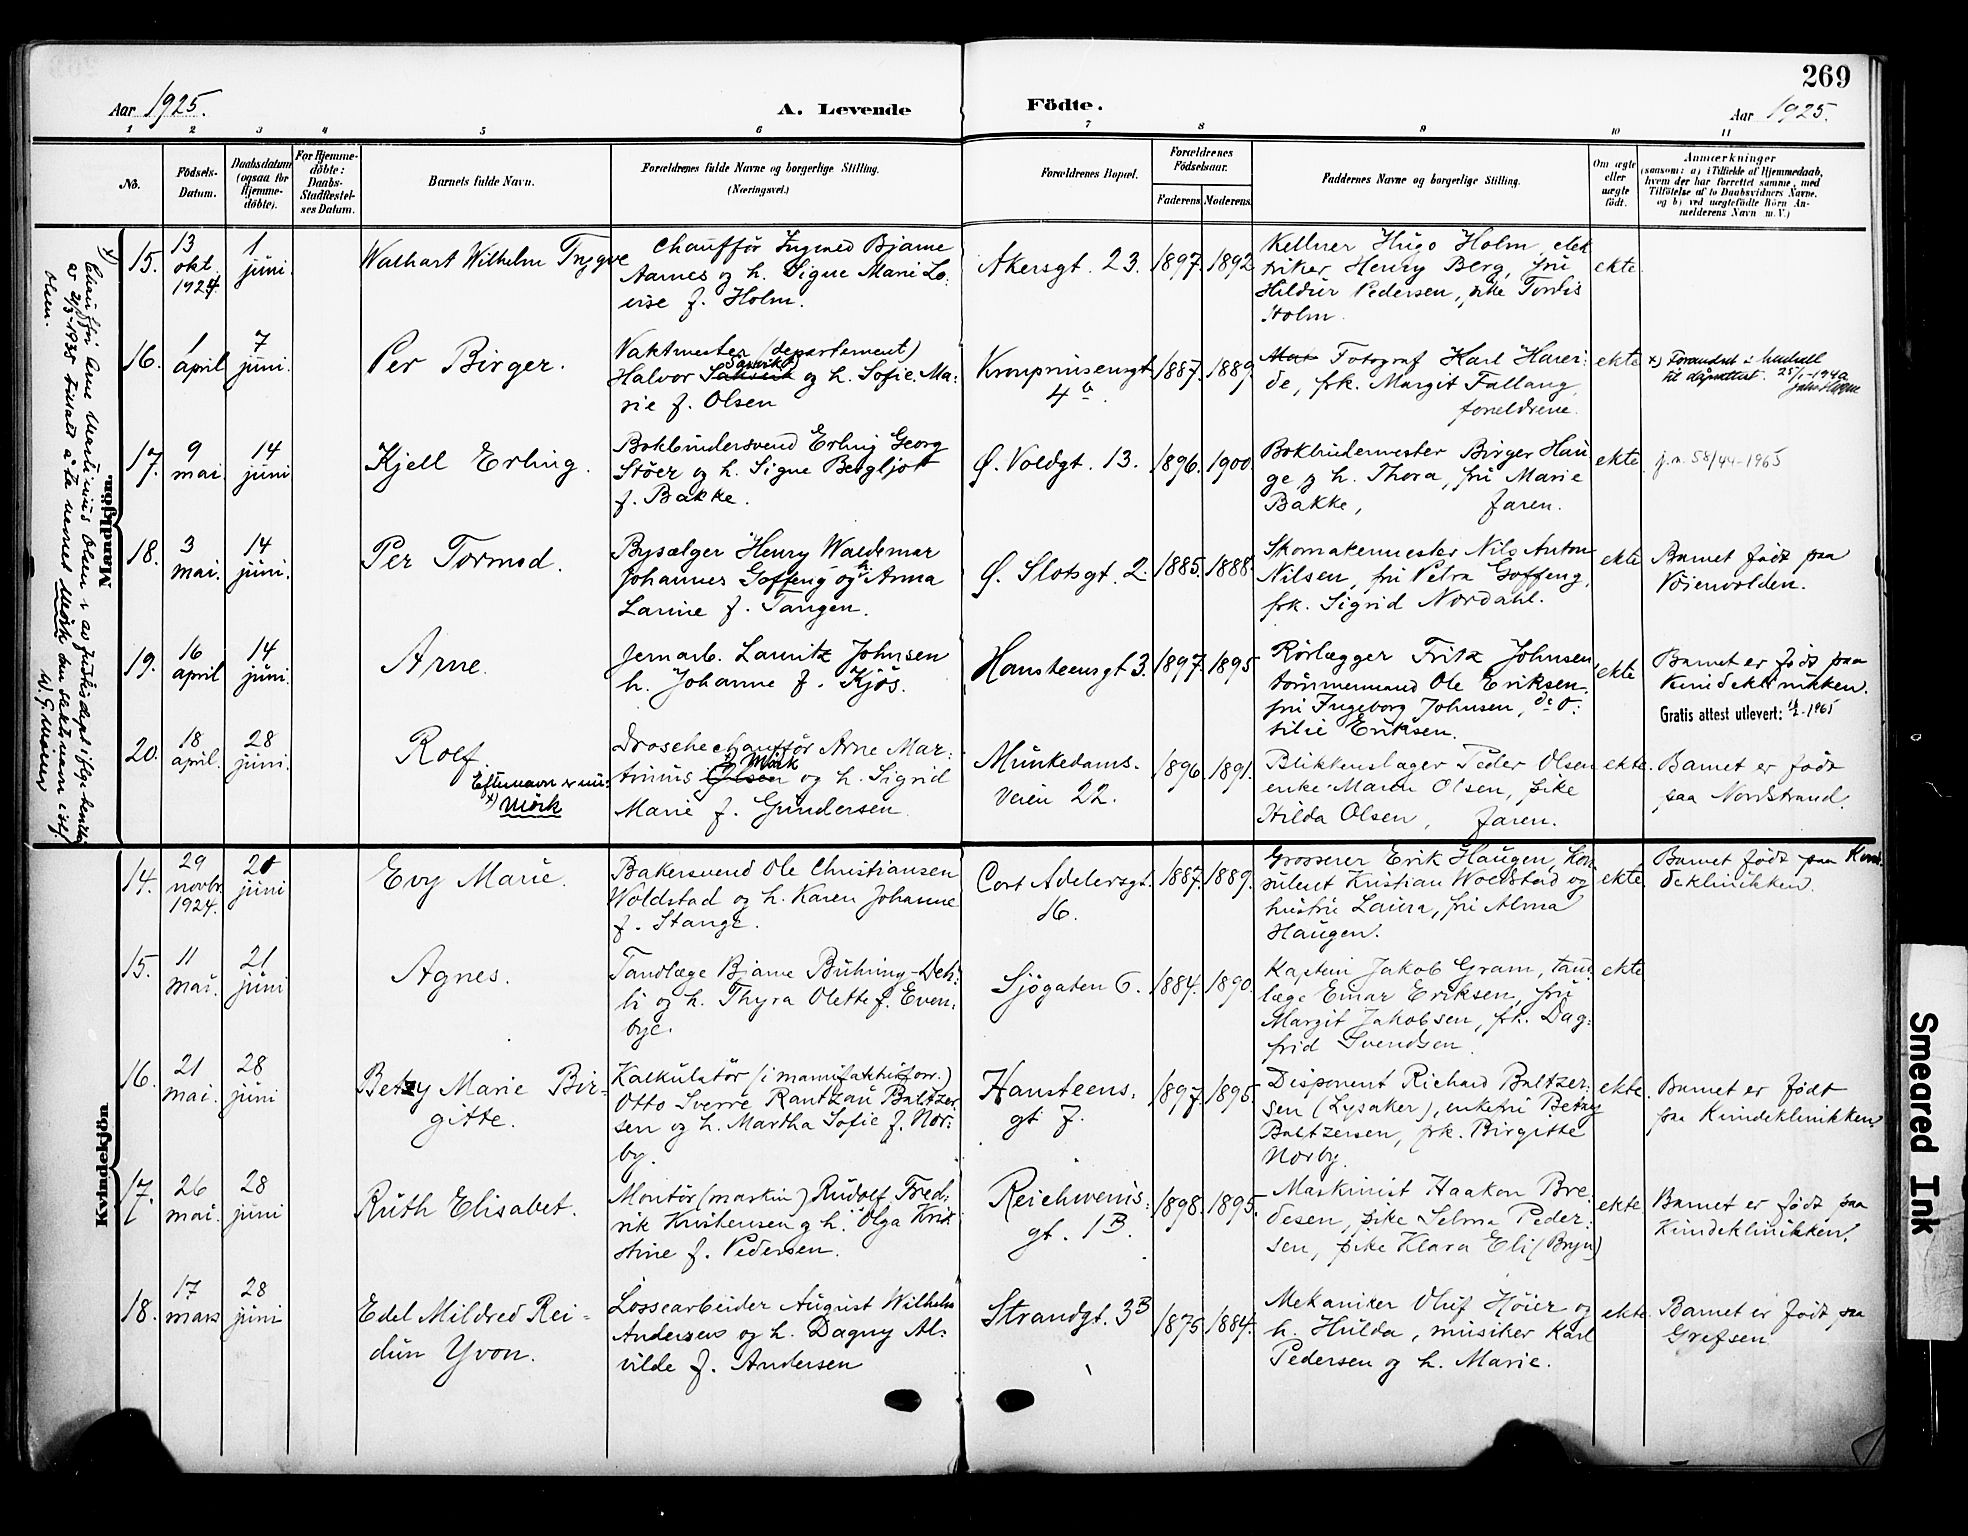 269
Aar 1925.
A. Levende
Födte.
Aar 1925.
1 2 3 4 5 6 7 8 9 10 11
No.
Födsels-
Datum.
Daabsdatum
(ogsaa for
Hjemme-
döbte).
For Hjemme-
döbte:
Daabs-
Stadfæstel-
ses Datum.
Barnets fulde Navn.
Forældrenes fulde Navne og borgerlige Stilling.
(Næringsvei.)
Forældrenes Bopæl.
Forældrenes
Födselsaar.
Faderens
Moderens
Faddernes Navne og borgerlige Stilling.
Om ægte
eller
uægte
født.
Anmærkninger
(saasom: a) i Tilfælde af Hjemmedaab,
hvem der har forrettet samme, med
Tilföielse af to Daabsvidners Navne,
og b) ved uægtefödte Börn An-
melderens Navn m. V.)
Mandkjön.
x) Chauffør Arne Martinius Olsen
er 21/3-1935 tillatt å ta navnet Mörk
Olsen.
W. G. Möiner
15.
13
okt.
1924.
1.
juni.
Walhart Wilhelm Trygve
Chaufför Ingvald Bjarne
Aarnes og h. Signe Marie Lo-
vise f. Holm.
Akersgt. 23.
1897.
1892
Kellner Hugo Holm, elek
triker Henry Berg, fru
Hildur Pedersen, pike Tordis
Holm.
ekte.
16.
1
april
7
juni.
Per Birger.
Vaktmester (departement)
Halvor og h. Sofie Ma-
rie f. Olsen
Kronprinsensgt
4a.
1887.
1889.
Fotograf Karl Harei-
de, frk. Margit Fallang,
foreldrene.
ekte
x) Forandret i henhold
til dåpsattest. 25/1-1940
17.
9
mai.
14
juni
Kjell Erling.
Bokbindersvend Erling Georg
Støer og h. Signe Bergljott
f. Bakke.
Ø. Voldgt. 13.
1896.
1900.
Bokbindermester Birger Hau
ge og h. Thora, fru Marie
Bakke, faren.
ekte
j.n. 58/44-1965
18.
3
mai.
14
juni.
Per Tormod.
Bysælger Henry Waldemar
Johannes Goffeng og h. Anna
Laurine f. Tangen.
Ø. Slotsgt. 2.
1885.
1888.
Skomakermester Nils Anton
Nilsen, fru Petra Goffeng,
frk. Sigrid Nordahl.
ekte.
Barnet født paa
Vöienvolden.
19.
16
april
14
juni.
Arne.
Jernarb. Lauritz Johnsen
h. Johanne f. Kjös.
Hansteensgt 3.
1897.
1895
Rörlægger Fritz Johnsen,
tömmermand Ole Eriksen,
fru Ingeborg Johnsen, do O-
tilie Eriksen.
ekte
Barnet er født paa
Kvindeklinikken.
Gratis attest utlevert: -1965
20.
18
april.
28
juni.
Rolf.
Efternavn er nu:
x) Mörk
Droschechauffør Arne Mar-
tinius Olsen x) Mörk og h. Sigrid
Marie f. Gundersen
Munkedams-
veien 22.
1896
1891.
Blikkenslager Peder Olsen
enke Maren Olsen, pike
Hilda Olsen, faren.
ekte.
Barnet er født
paa Nordstrand.
Kvindekjön
14.
29
novbr.
1924.
21
juni
Evy Marie.
Bakersvend Ole Christiansen
Woldstad og h. Karen Johanne
f. Stange.
Cort Adelersgt.
16.
1887.
1889.
Grosserer Erik Haugen, kon-
sulent Kristian Woldstad og
hustru Laura, fru Alma
Haugen.
ekte.
Barnet født paa Kvin-
deklinikken.
15.
11
mai.
21
juni
Agnes.
Tandlæge Bjarne Bühring-Deh-
li og h. Thyra Olette f. Even-
bye.
Sjögaten 6.
1884.
1890.
Kaptein Jakob Gram, tand-
læge Einar Eriksen, fru
Margit Jakobsen, frk. Dag-
frid Svendsen.
ekte
16.
21
mai.
28
juni
Betzy Marie Bir-
gitte.
Kalkulatör (i manufakturforr.)
Otto Sverre Rantzau Baltzer-
sen og h. Martha Sofie f. Nor-
by.
Hansteens-
gt 7.
1897.
1895.
Disponent Richard Baltzer-
sen (Lysaker), enkefru Betzy
Baltzersen, frk. Birgitte
Norby.
ekte.
Barnet er født
paa Kvindeklinikken
17.
26
mai.
28
juni
Ruth Elisabet.
Montör (maskin) Rudolf Fred-
rik Kristensen og h. Olga Kris
tine f. Pedersen.
Reichweins-
gt. 1B.
1898.
1895.
Maskinist Haakon Bre-
desen, pike Selma Peder-
sen, pike Klara Eli (Bryn)
ekte.
Barnet er født paa
Kvindeklinikken.
18.
17
mars
28
juni
Edel Mildred Rei-
dun Yvon.
Lossearbeider August Wilhelm
Andersen og h. Dagny Al-
vilde f. Andersen
Strandgt. 3B
1875
1884.
Mekaniker Oluf Höier og
h. Hulda, musiker Karl
Pedersen og h. Marie.
ekte.
Barnet er født paa
Grefsen.
Smeared Ink